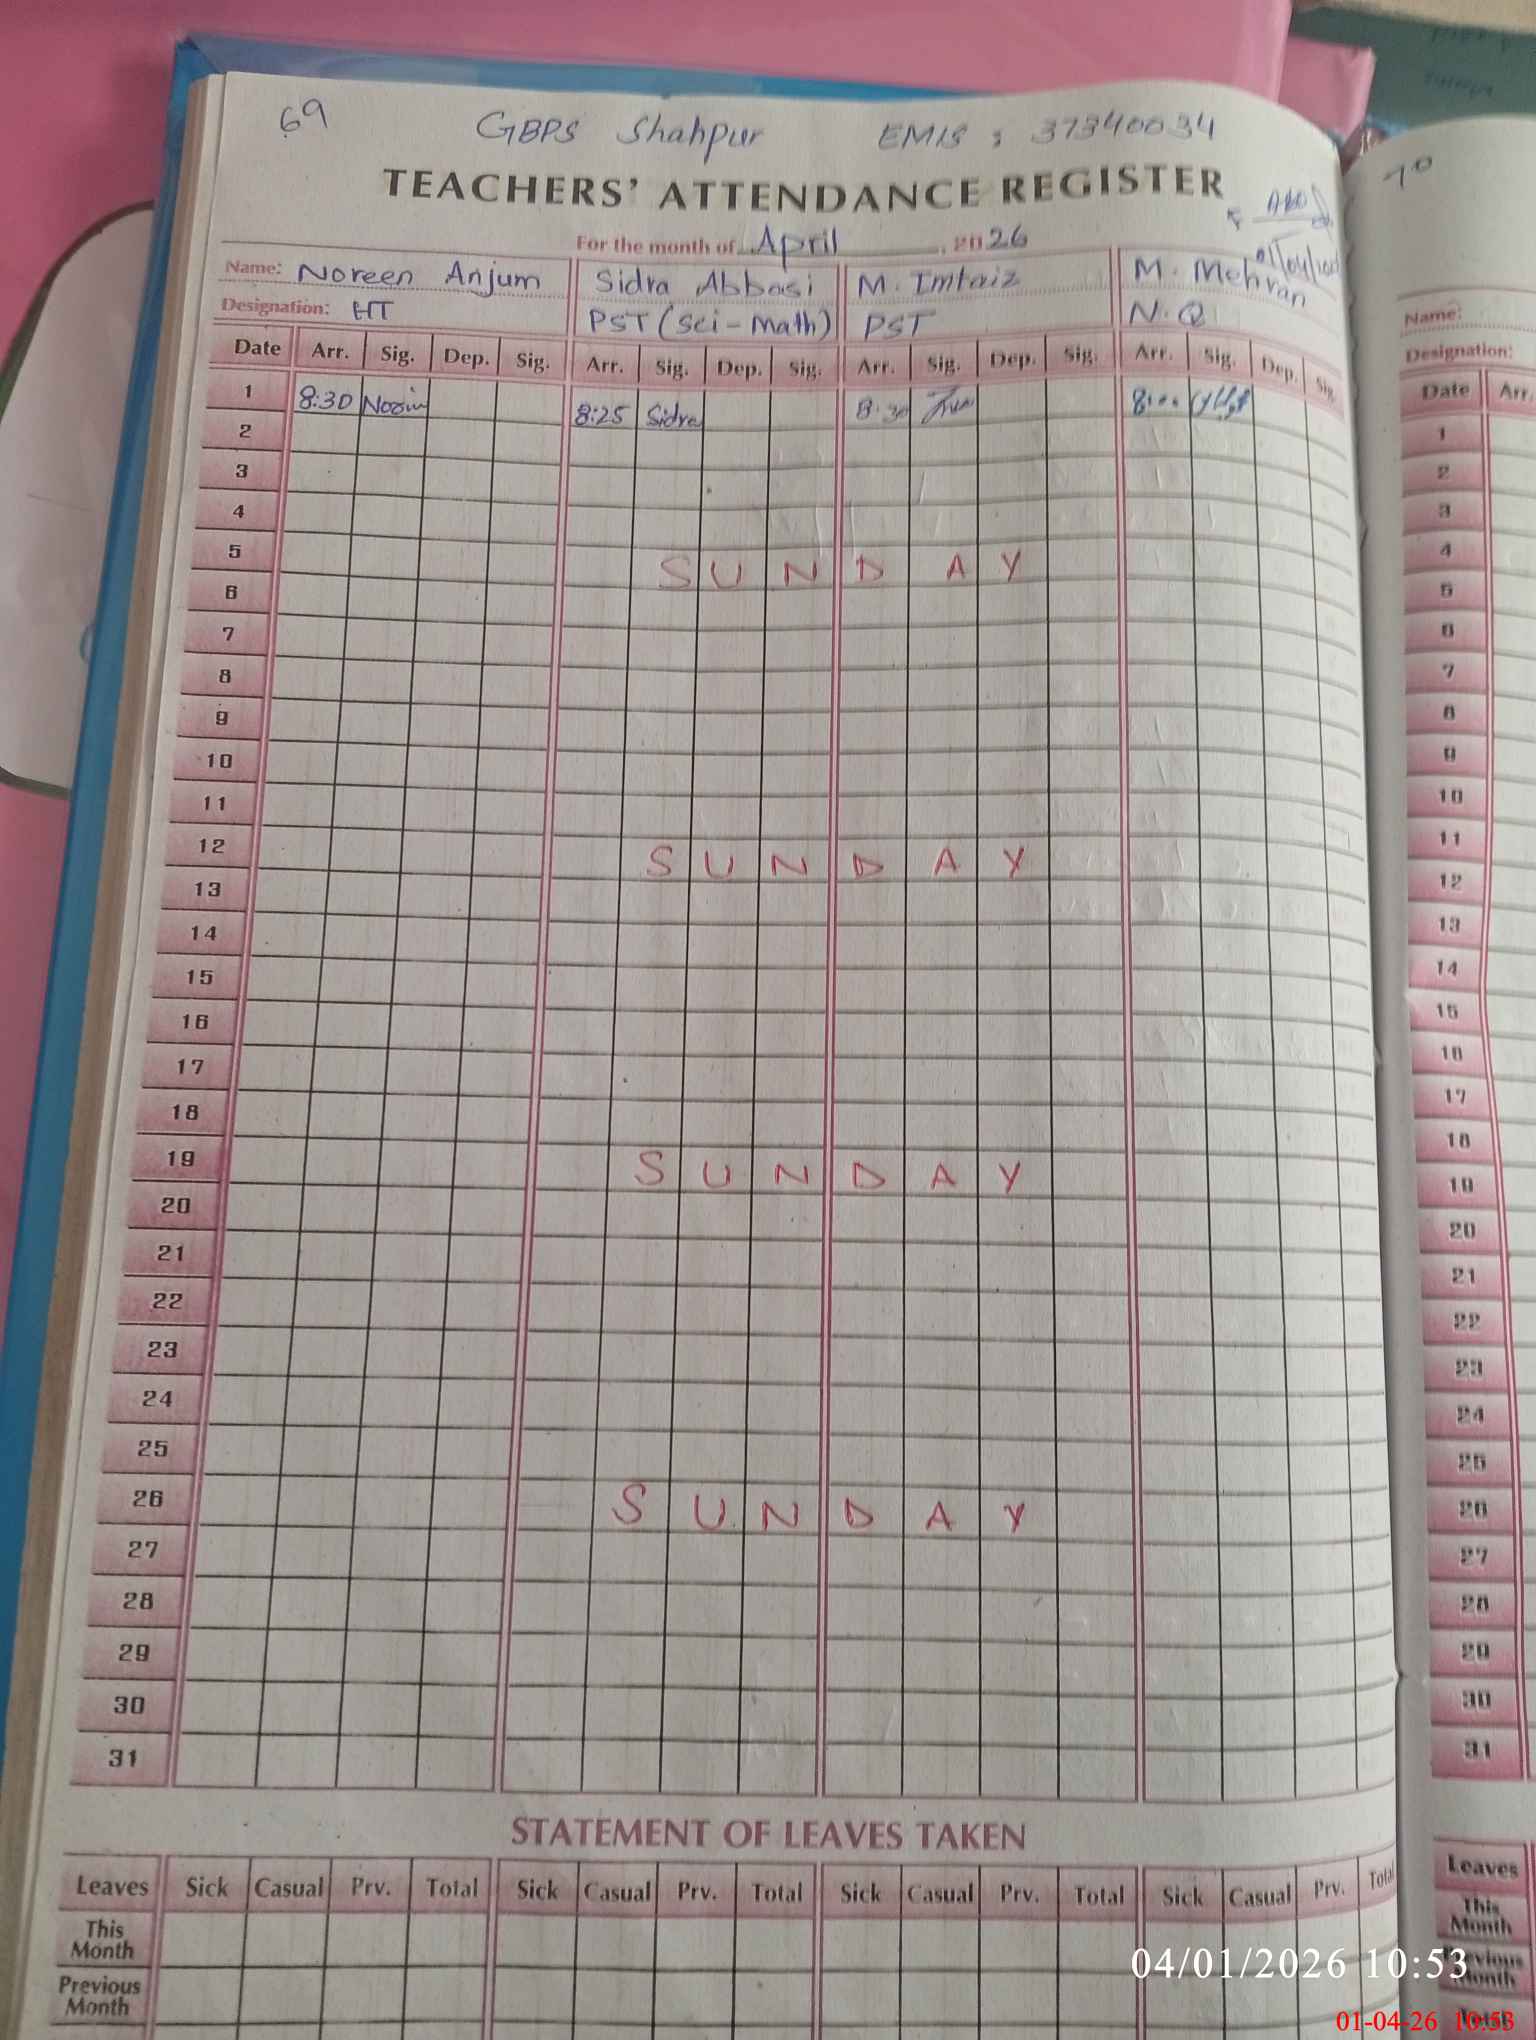 69 GBPS Shahpur EMIS : 37340034
TEACHERS' ATTENDANCE REGISTER
For the month of April, 2026
Name: Noreen Anjum Sidra Abbasi M. Imtaiz M. Mehran
Designation: HT PST (Sci-Math) PST N.Q
Date Arr. Sig. Dep. Sig. Arr. Sig. Dep. Sig. Arr. Sig. Dep. Sig. Arr. Sig. Dep. Sig.
1 8:30 8:25 Sidra 8:30 8:00
2
3
4
5 SUNDAY
6
7
8
9
10
11
12 SUNDAY
13
14
15
16
17
18
19 SUNDAY
20
21
22
23
24
25
26 SUNDAY
27
28
29
30
31
STATEMENT OF LEAVES TAKEN
Leaves Sick Casual Prv. Total Sick Casual Prv. Total Sick Casual Prv. Total Sick Casual Prv. Total
This Month
Previous Month
70
Name:
Designation:
Date Arr.
1
2
3
4
5
6
7
8
9
10
11
12
13
14
15
16
17
18
19
20
21
22
23
24
25
26
27
28
29
30
31
Leaves
This Month
Previous Month
04/01/2026 10:53
01-04-26 10:53